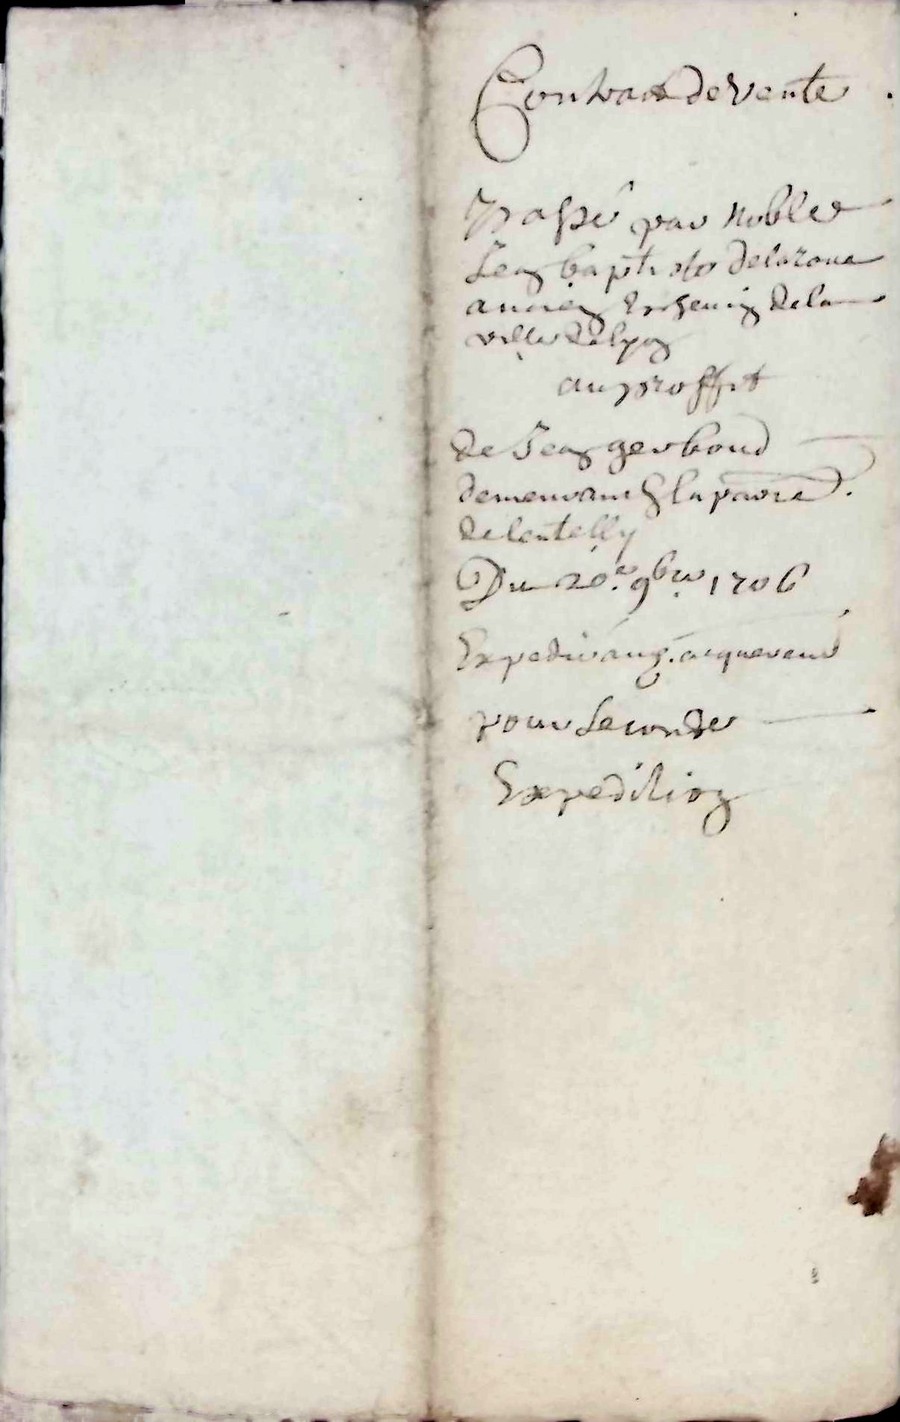 Contract de vente
Passé par noble
Jean baptiste de laroue
ancien Eschevin de la
ville de lyon
au proffit
de Jean gerboud
demeurant la paroisse
de lentilly
Du 20e 9bre 1706
Expedié acquereur
pour seconde
Expedition